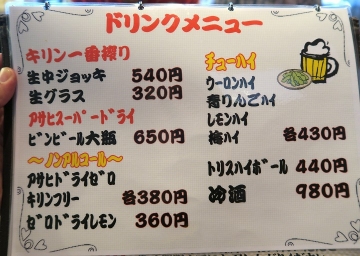 ドリンクメニュー
キリン一番搾り
生中ジョッキ 540円
生グラス 320円
アサヒスーパードライ
ビンビール大瓶 650円
～ノンアルコール～
アサヒドライゼロ
キリンフリー 各380円
ゼロドライレモン 360円
チューハイ
ウーロンハイ
青りんごハイ
レモンハイ
梅ハイ 各430円
トリスハイボール 440円
冷酒 980円